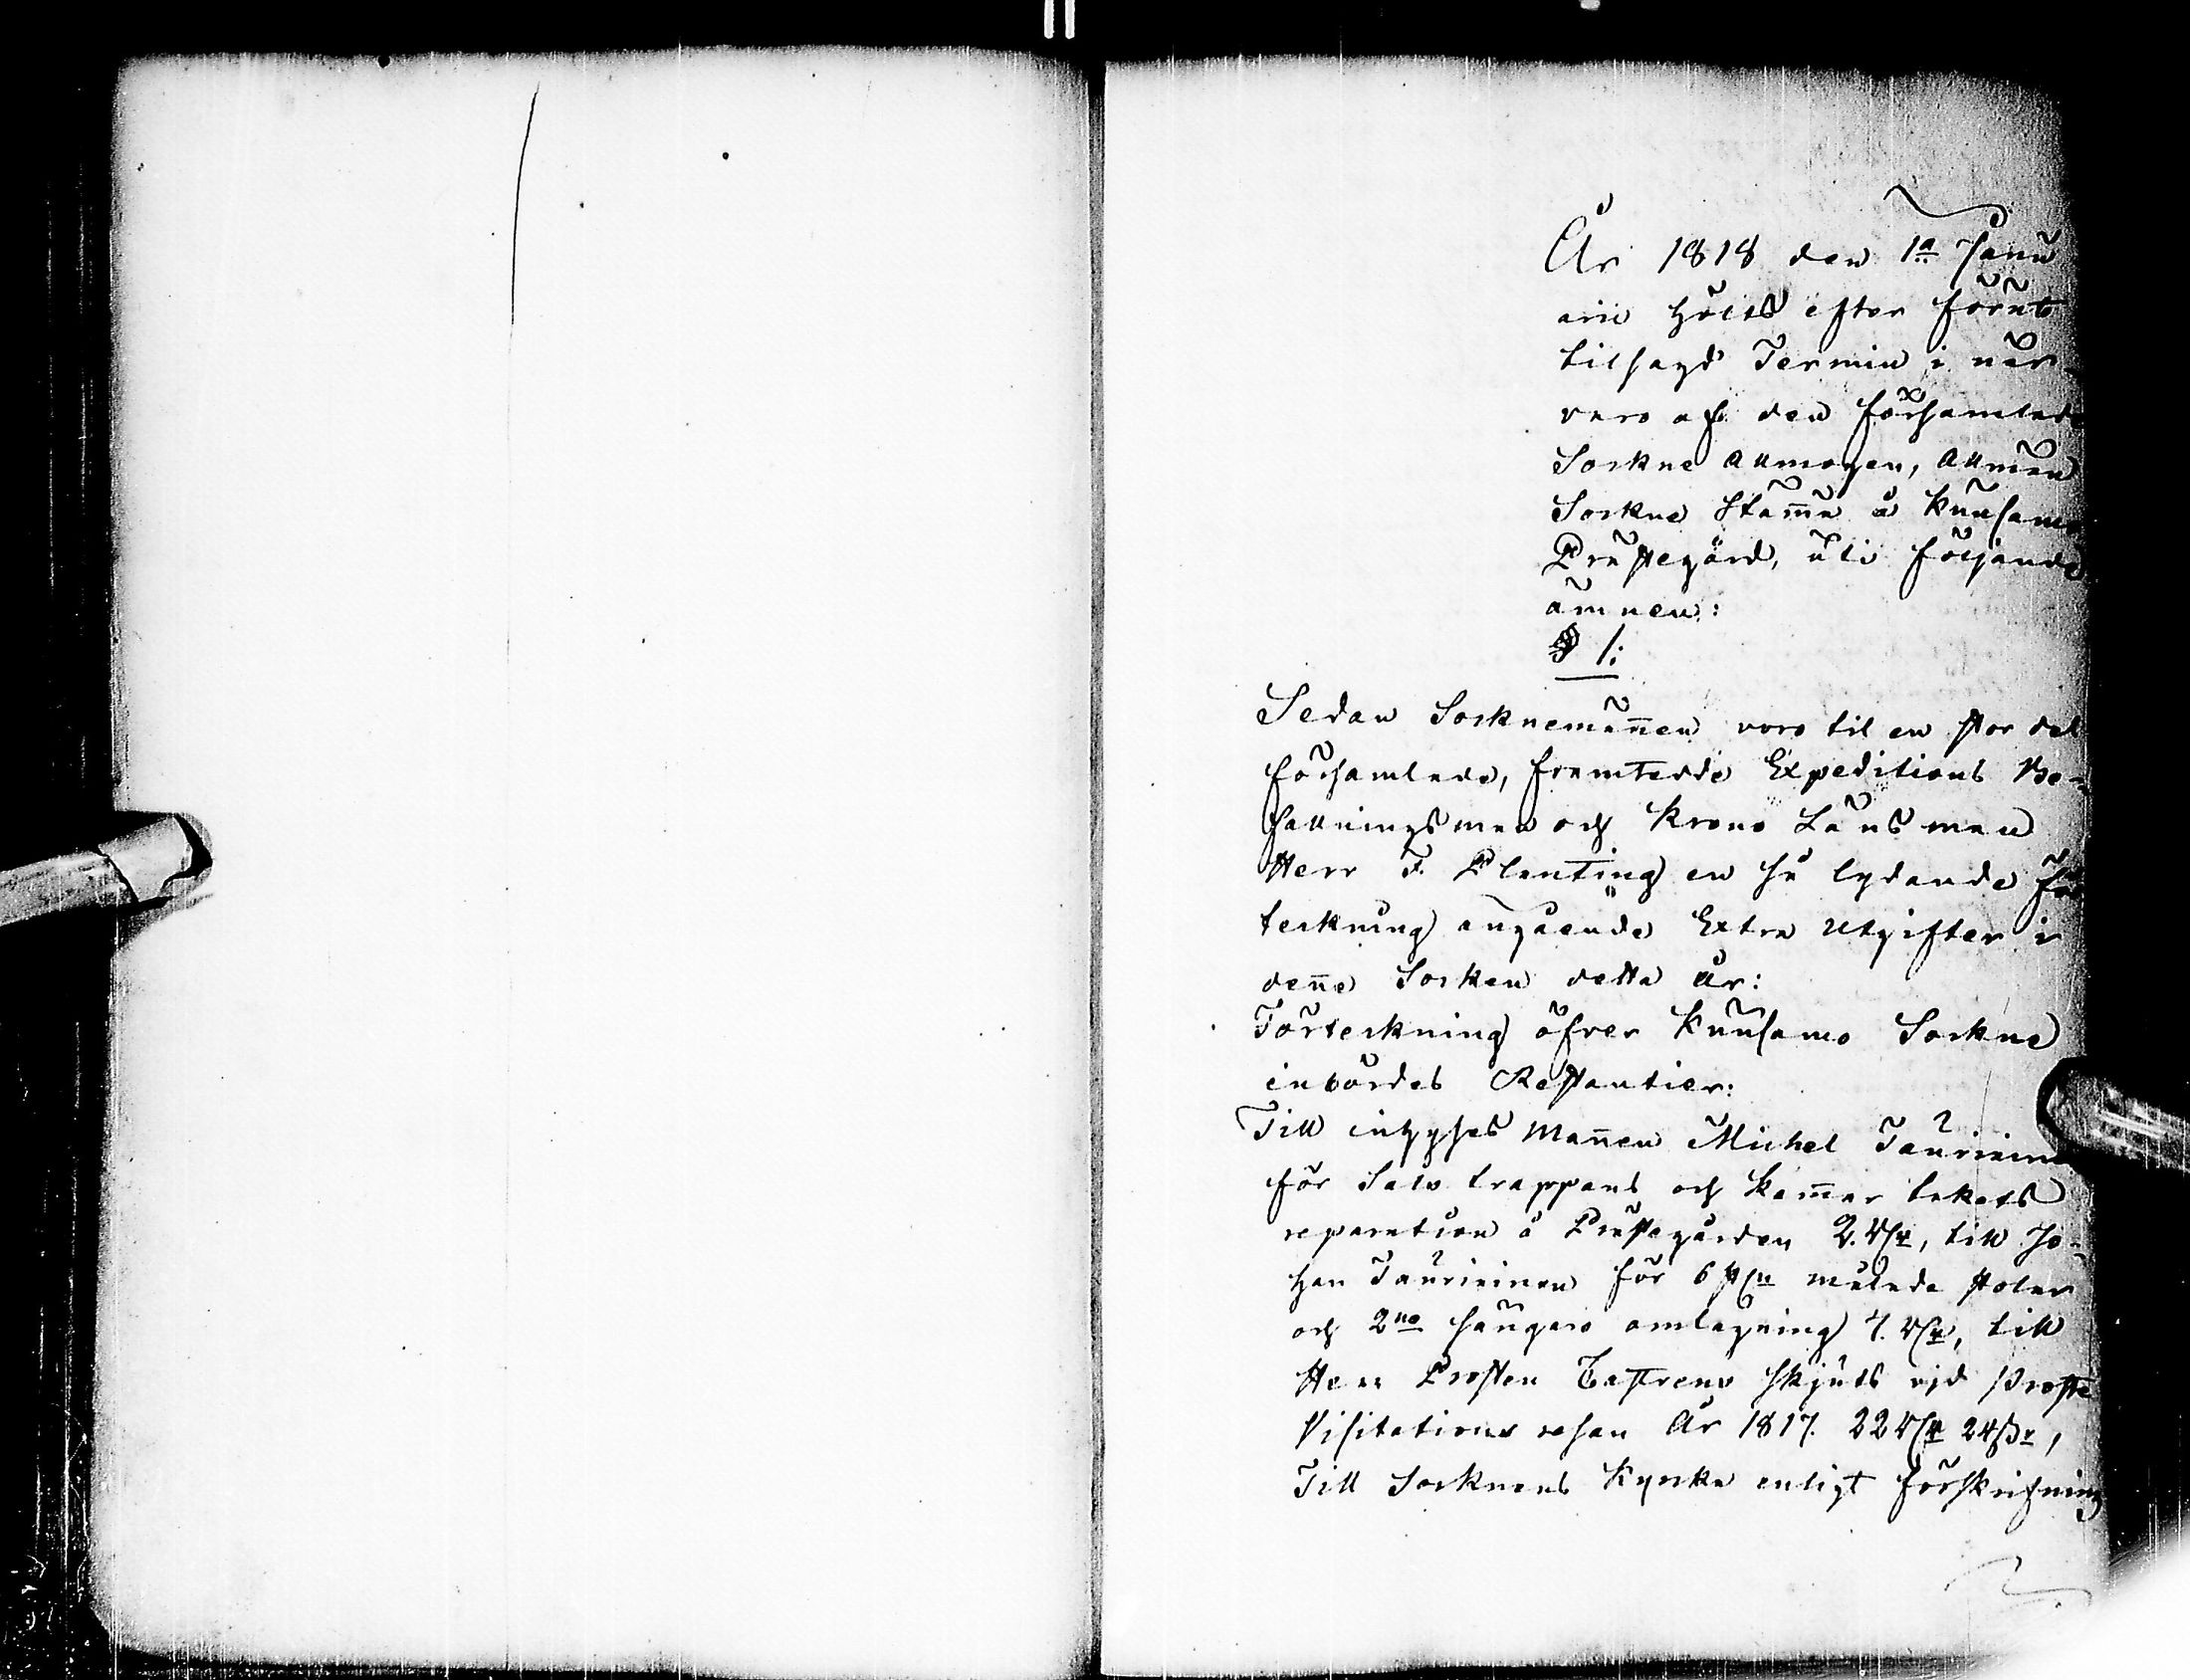 År 1818 den 1a Janu
arii hölts efter förut
tilsagd Termin i när-
varo af den församlade
Sockne Allmogen, Allmän
Sockne Stämma å Kuusamo
Prästegård, uti följande
ämnen:
§ 1:
Sedan Socknemännen voro til en stor del
församlade, framtedde Expeditions Be-
fallningsman och Krono Länsman
Herr F. Planting en så lydande för
teckning angående Extra Utgifter i
denna Socken detta år:
Förteckning öfver Kuusamo Sockne
inbördes Restantier:
Till inhyses Mannen Michel Tauriainen
för Sals trappans och kammar takets
reparation å Prästegården 2. RSr, till Jo-
han Tauriainen för 6 st målade stolar
och 2ne sängars omlagning 4. RSr, till
Herr Prosten Castrens skjuts vid Proste
Visitations resan År 1817. 22 RSr 24 ßr,
Till Socknens Kyrka enligt förskrifning